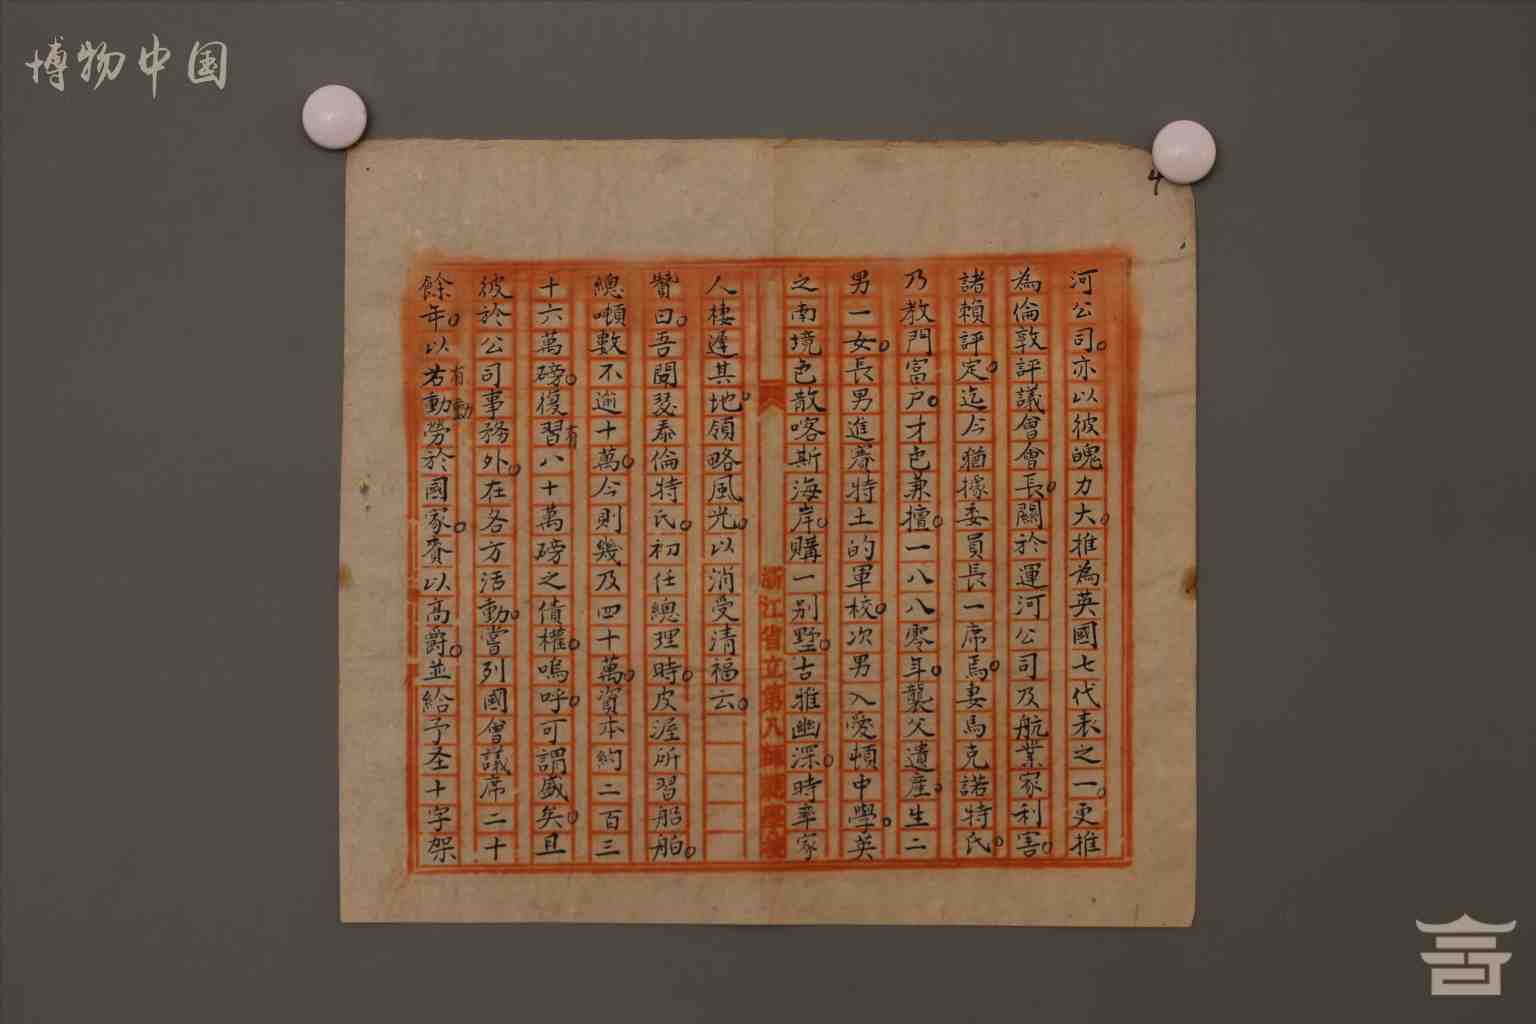 博物中国
4
河公司。亦以彼魄力大。推為英國七代表之一。更推
為倫敦評議會會長。關於運河公司及航業家利害。
諸賴評定。迄今猶據委員長一席焉。妻馬克諾特氏。
乃教門富户。才色兼擅。一八八零年。襲父遺產。生二
男一女。長男進賽特土的軍校。次男入愛頓中學。英
之南境色散喀斯海岸。購一别墅。古雅幽深。時率家
浙江省立第八師範學校
人棲遲其地。領略風光。以消受清福云。
贊曰。吾聞瑟泰倫特氏。初任總理時。皮渥所習船舶。
總噸數不逾十萬。今則幾及四十萬。資本約二百三
十六萬磅。復習有八十萬磅之債權。嗚呼。可謂盛矣。且
彼於公司事務外。在各方活動。嘗列國會議席二十
餘年。以若有動勤勞於國家。賚以高爵。並給予圣十字架